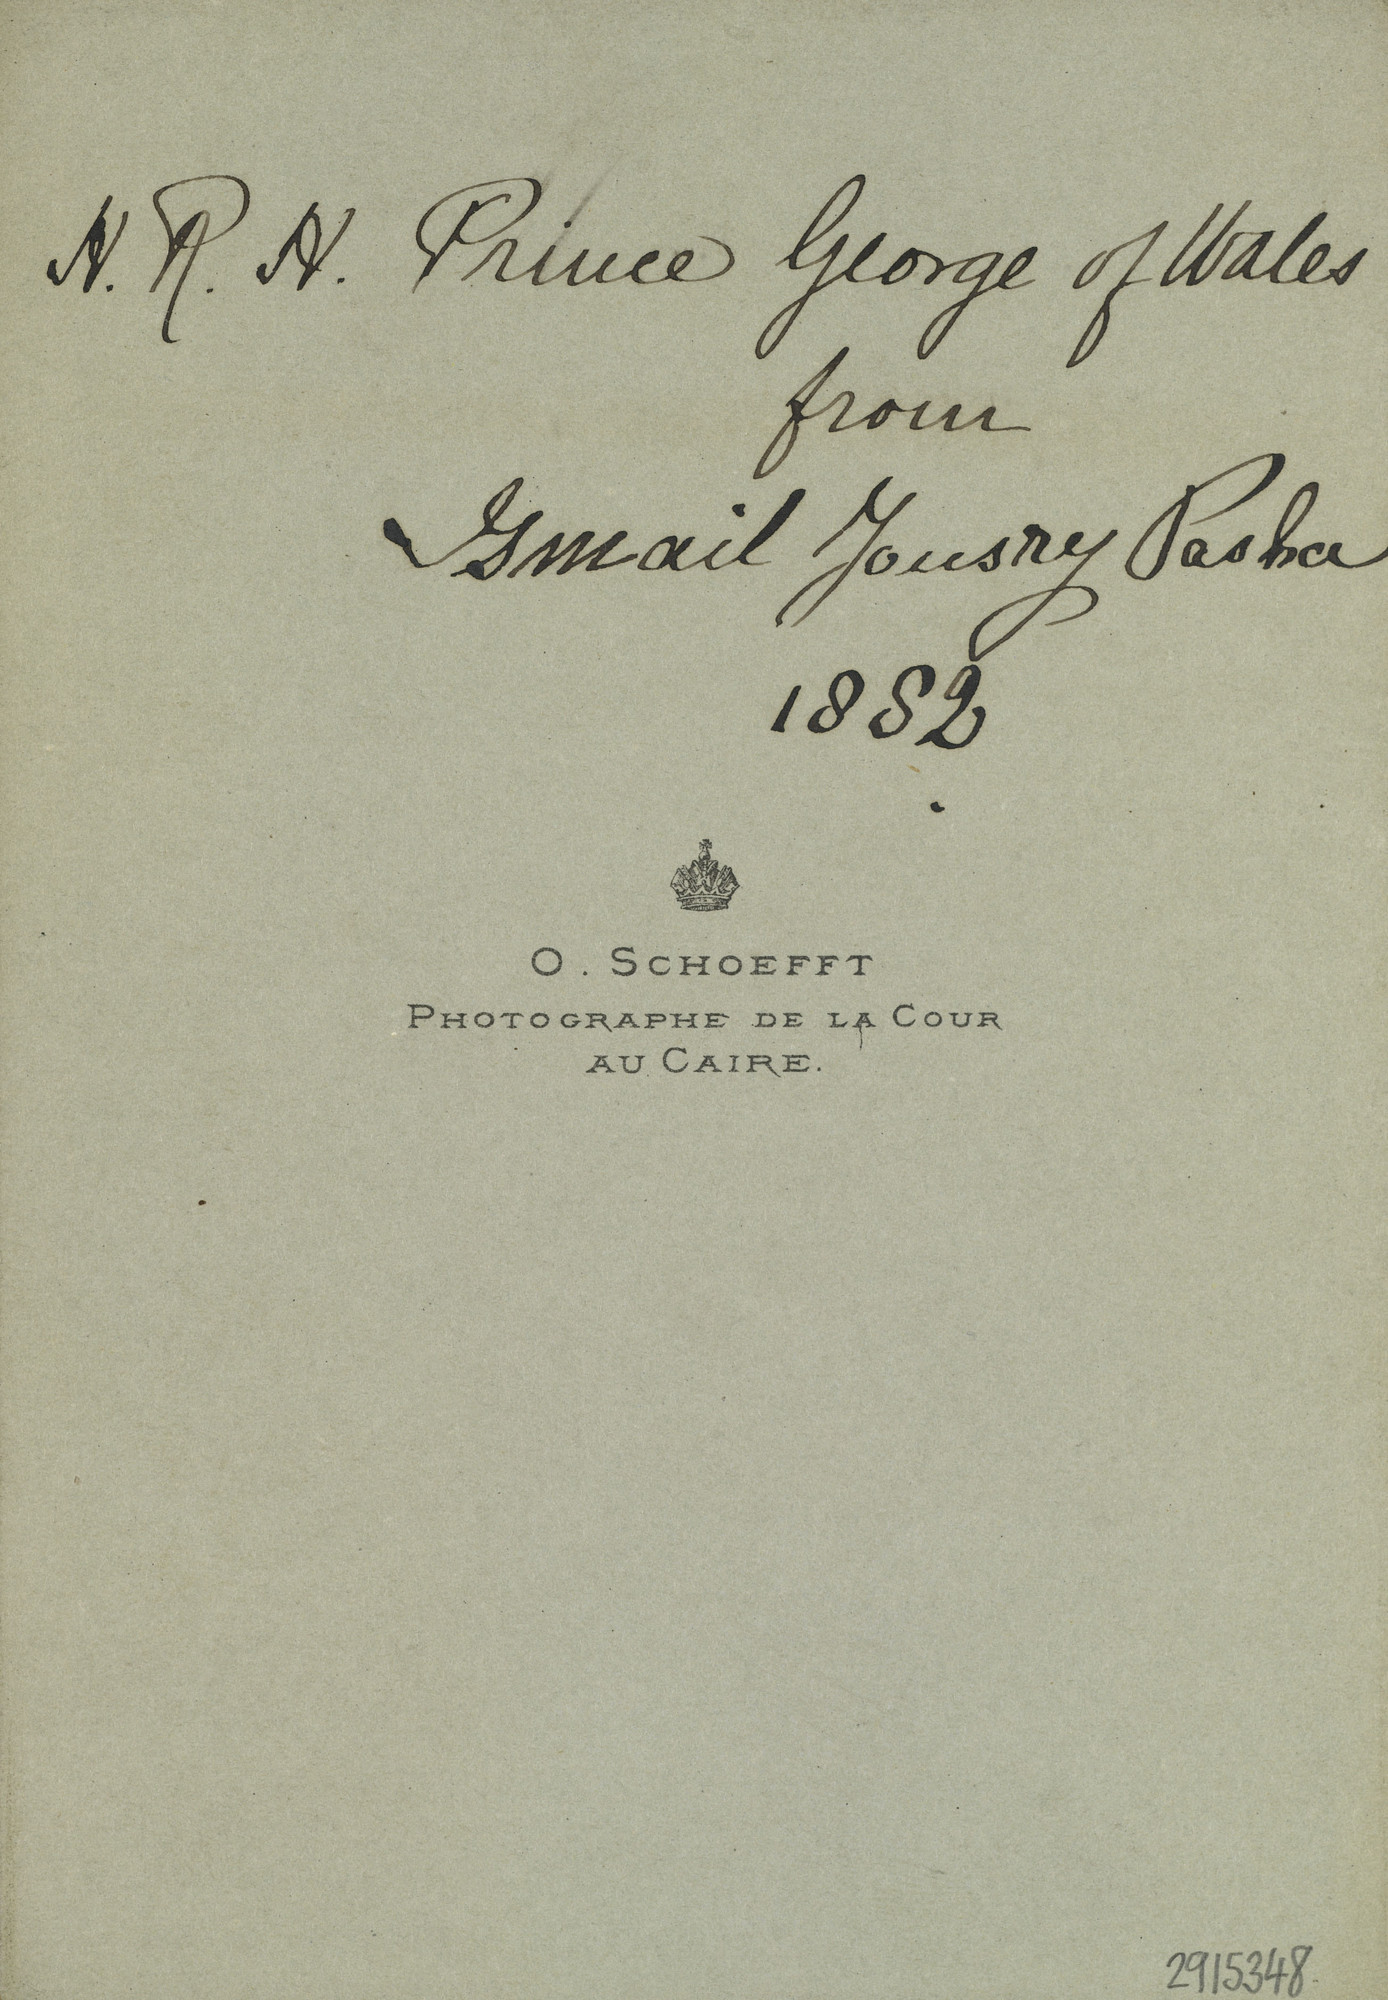 H. R. H. Prince George of Wales
from
Ismail Yousry Pasha
1882
O. SCHOEFFT
PHOTOGRAPHE DE LA COUR
AU CAIRE.
2915348